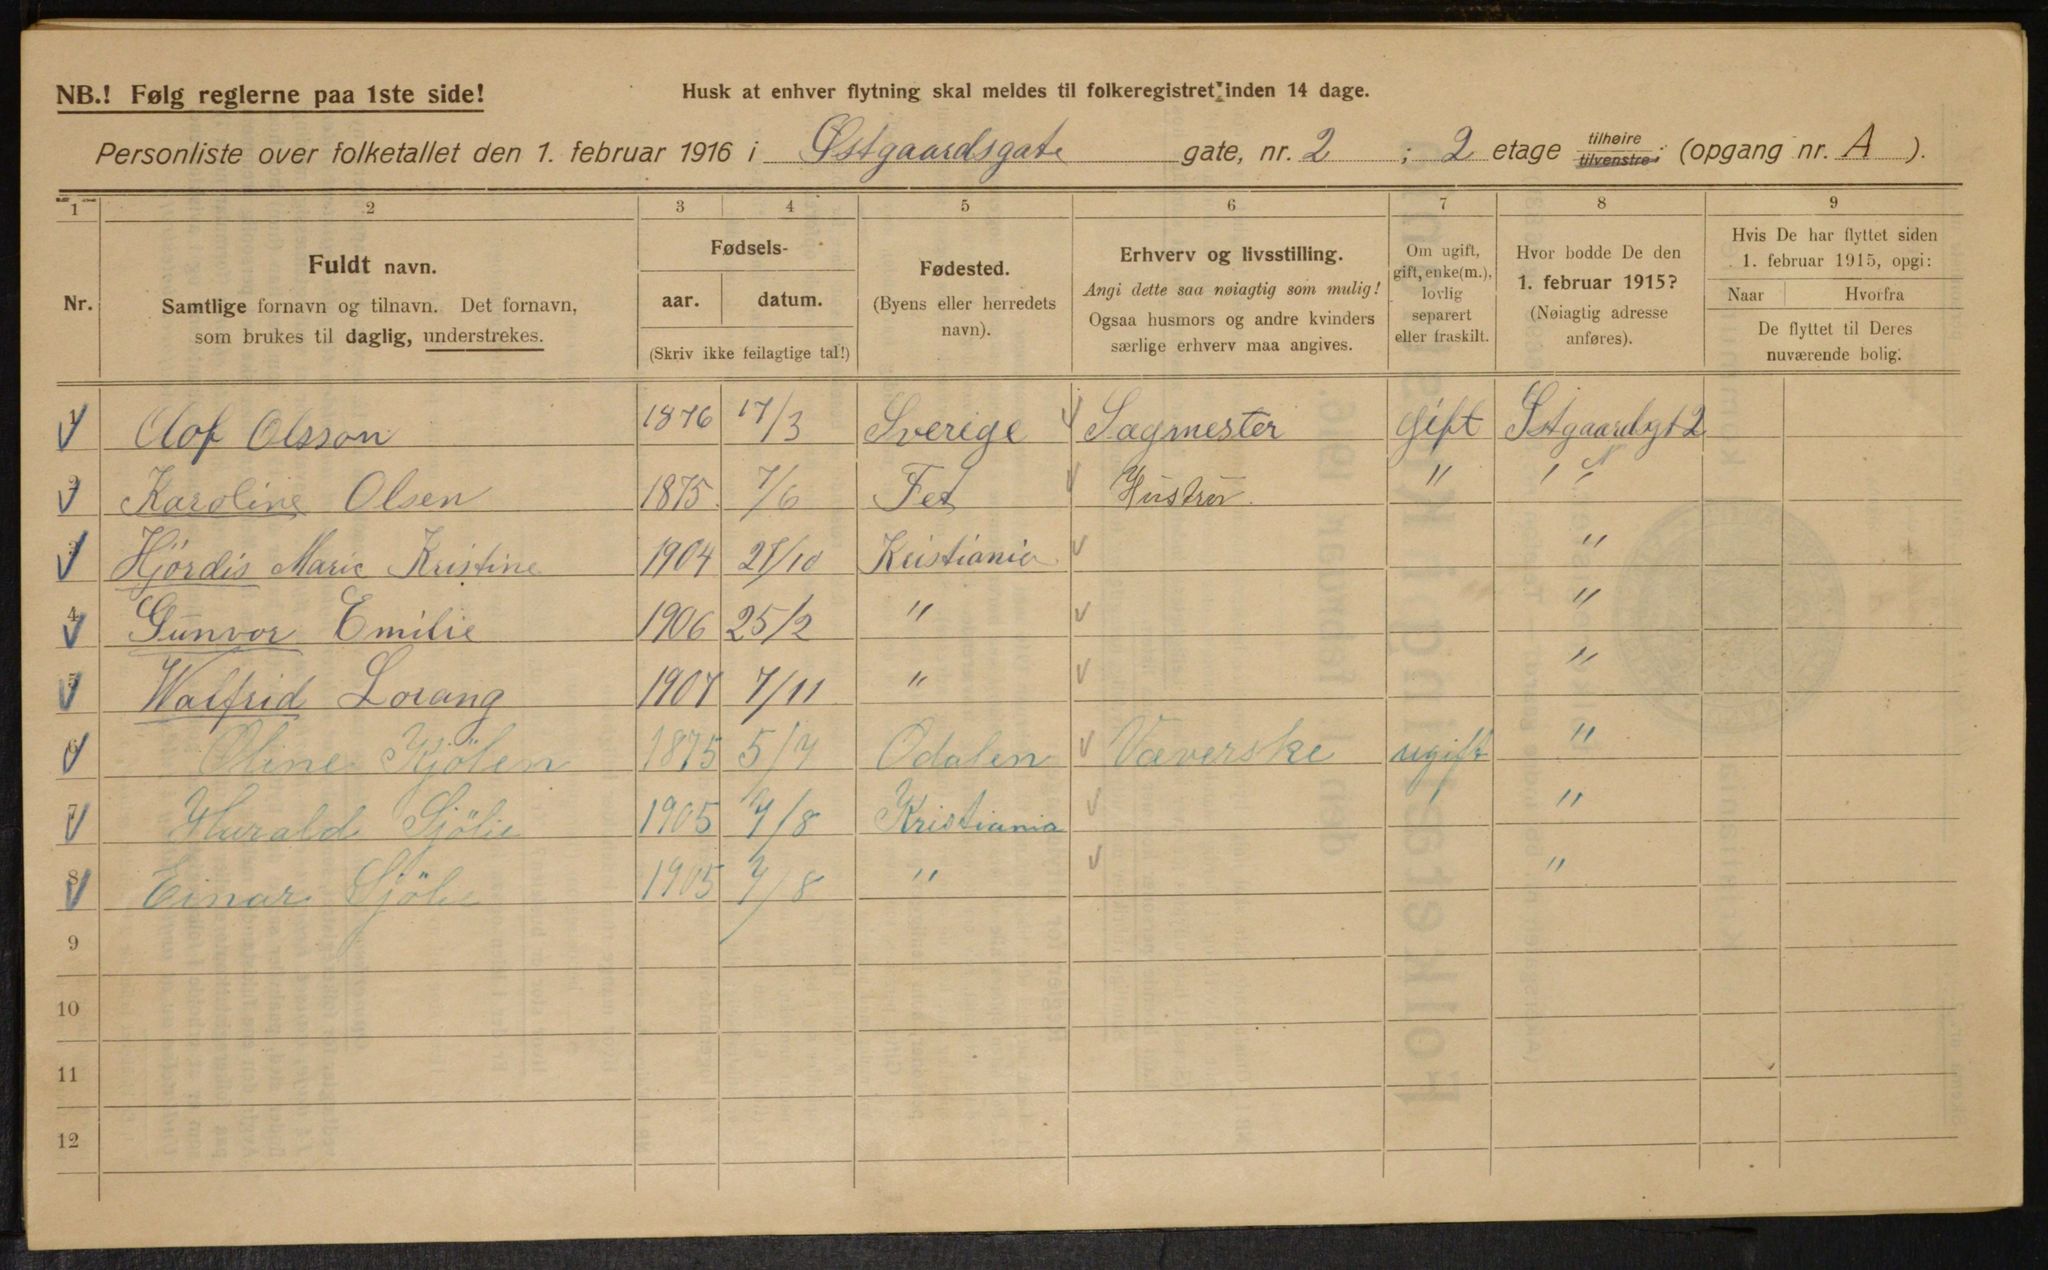 NB.! Følg reglerne paa 1ste side!
Husk at enhver flytning skal meldes til folkeregistret inden 14 dage.
Personliste over folketallet den 1. februar 1916 i Østgaardsgate gate, nr. 2 ; 2 etage tilhøire tilvenstre; (opgang nr. A ).
1 2 3 4 5 6 7 8 9
Nr.
Fuldt navn.
Samtlige fornavn og tilnavn. Det fornavn,
som brukes til daglig, understrekes.
Fødsels-
aar. datum.
(Skriv ikke feilagtige tal!)
Fødested.
(Byens eller herredets
navn).
Erhverv og livsstilling.
Angi dette saa nøiagtig som mulig!
Ogsaa husmors og andre kvinders
særlige erhverv maa angives.
Om ugift,
gift, enke(m.),
lovlig
separert
eller fraskilt.
Hvor bodde De den
1. februar 1915?
(Nøiagtig adresse
anføres).
Hvis De har flyttet siden
1. februar 1915, opgi:
Naar Hvorfra
De flyttet til Deres
nuværende bolig.
1 Olof Olsson 1876 17/3 Sverige Sagmester gift Østgaardsgt 2
2 Karoline Olsen 1875 7/6 Fet Hustru " "
3 Hjördis Marie Kristine 1904 27/10 Kristiania "
4 Gunvor Emilie 1906 25/2 " "
5 Walfrid Lorang 1907 7/11 " "
6 Oline Kjölen 1875 5/7 Odalen Væverske ugift "
7 Harald Sjölie 1905 7/8 Kristiania "
8 Einar Sjölie 1905 7/8 " "
9
10
11
12